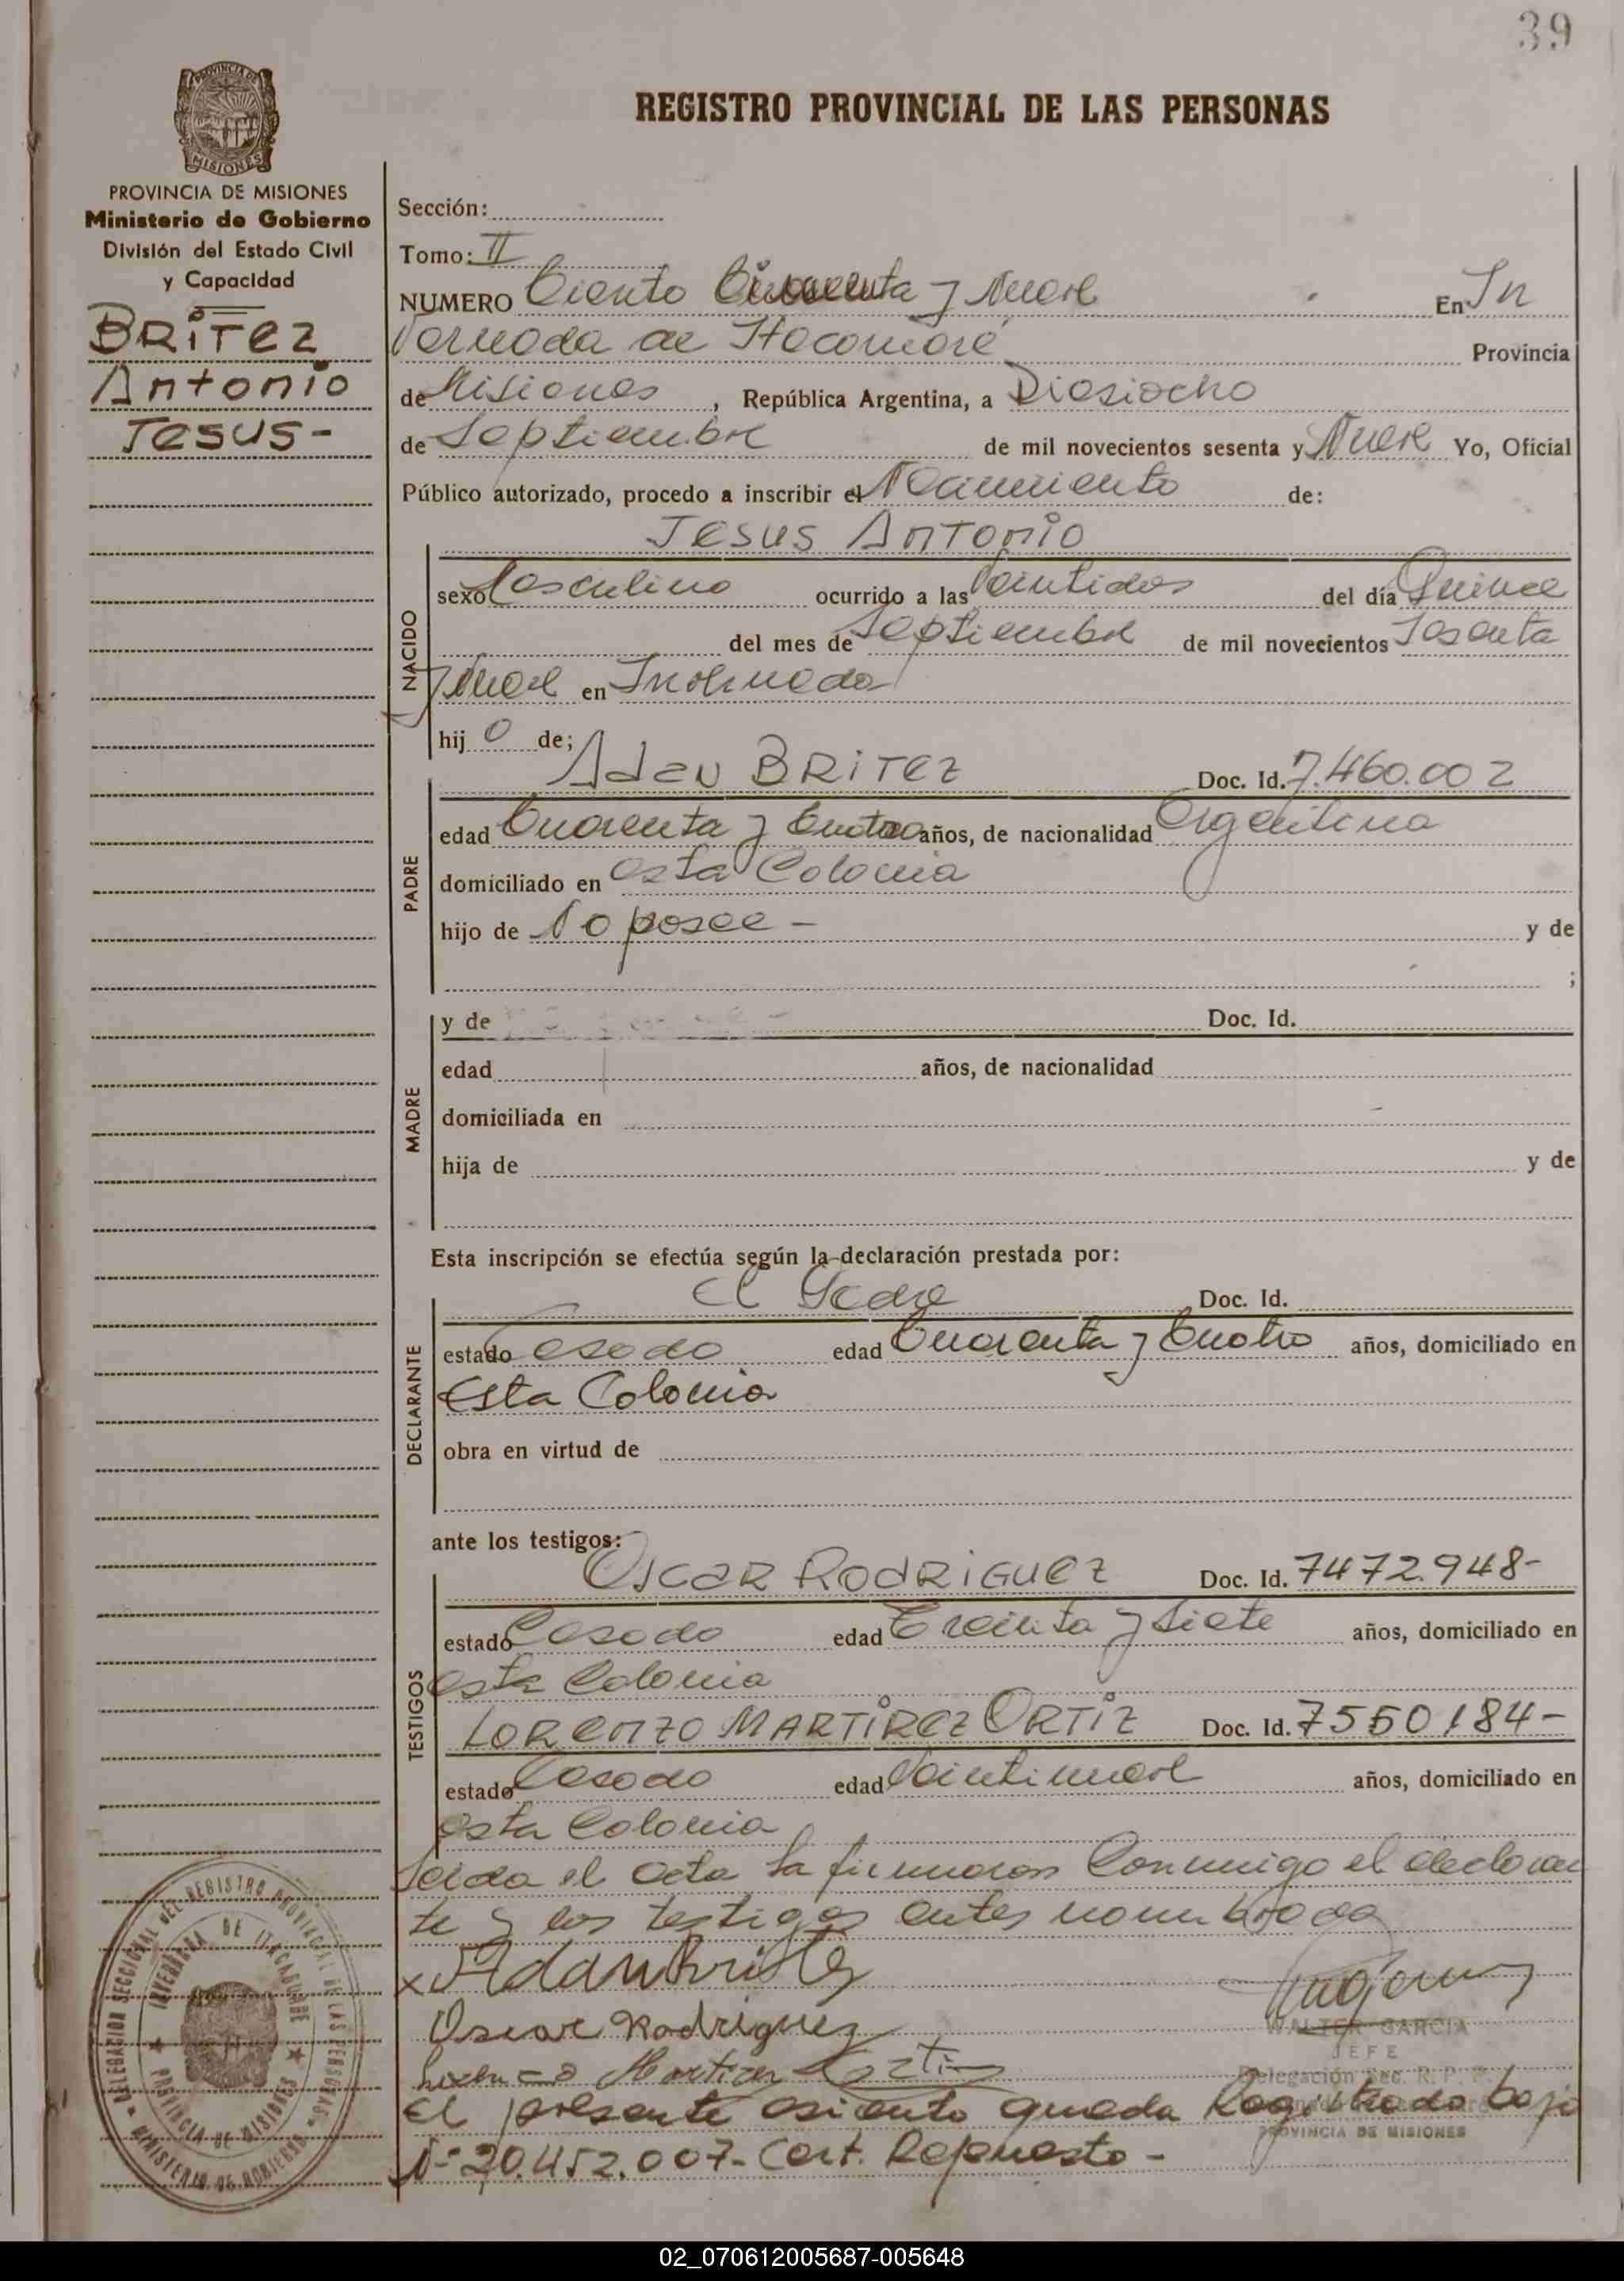 39
PROVINCIA DE
MISIONES
REGISTRO PROVINCIAL DE LAS PERSONAS
PROVINCIA DE MISIONES
Ministerio de Gobierno
División del Estado Civil
y Capacidad
BRITEZ
Antonio
Jesus-
Sección:
Tomo: II
NUMERO Ciento Cincuenta y Nueve En In
vernada de Itacaruaré Provincia
de Misiones, República Argentina, a Diesiocho
de Septiembre de mil novecientos sesenta y Nueve Yo, Oficial
Público autorizado, procedo a inscribir el Nacimiento de:
Jesus Antonio
NACIDO
sexo Masculino ocurrido a las Veintidos del día Quince
del mes de Septiembre de mil novecientos Sesenta
y Nueve en Invernada
hij o de;
PADRE
Adan BRITEZ Doc. Id. 7.460.002
edad Cuarenta y Cuatro años, de nacionalidad Argentina
domiciliado en esta Colonia
hijo de No posee - y de
;
MADRE
y de Doc. Id.
edad años, de nacionalidad
domiciliada en
hija de y de
Esta inscripción se efectúa según la declaración prestada por:
DECLARANTE
El Padre Doc. Id.
estado Casado edad Cuarenta y Cuatro años, domiciliado en
Esta Colonia
obra en virtud de
ante los testigos:
TESTIGOS
OSCAR RODRIGUEZ Doc. Id. 7472.948-
estado Casado edad Treinta y Siete años, domiciliado en
esta Colonia
LORENZO MARTIREZ ORTIZ Doc. Id. 7550184-
estado Casado edad Veintinueve años, domiciliado en
esta Colonia
Leida el acta la firmaron Conmigo el declaran
te y los testigos antes nombrado
x Adan Britez
Oscar Rodriguez
WALTER GARCIA
JEFE
Delegación Sec. R. P. P.
PROVINCIA DE MISIONES
El presente asiento queda Registrado bajo
Nº 20.452.007- Cert. Repuesto -
DELEGACION SECCIONAL DEL REGISTRO PROVINCIAL DE LAS PERSONAS
MINISTERIO DE GOBIERNO
INVERNADA DE ITACARUARE
PROVINCIA DE MISIONES
02_070612005687-005648